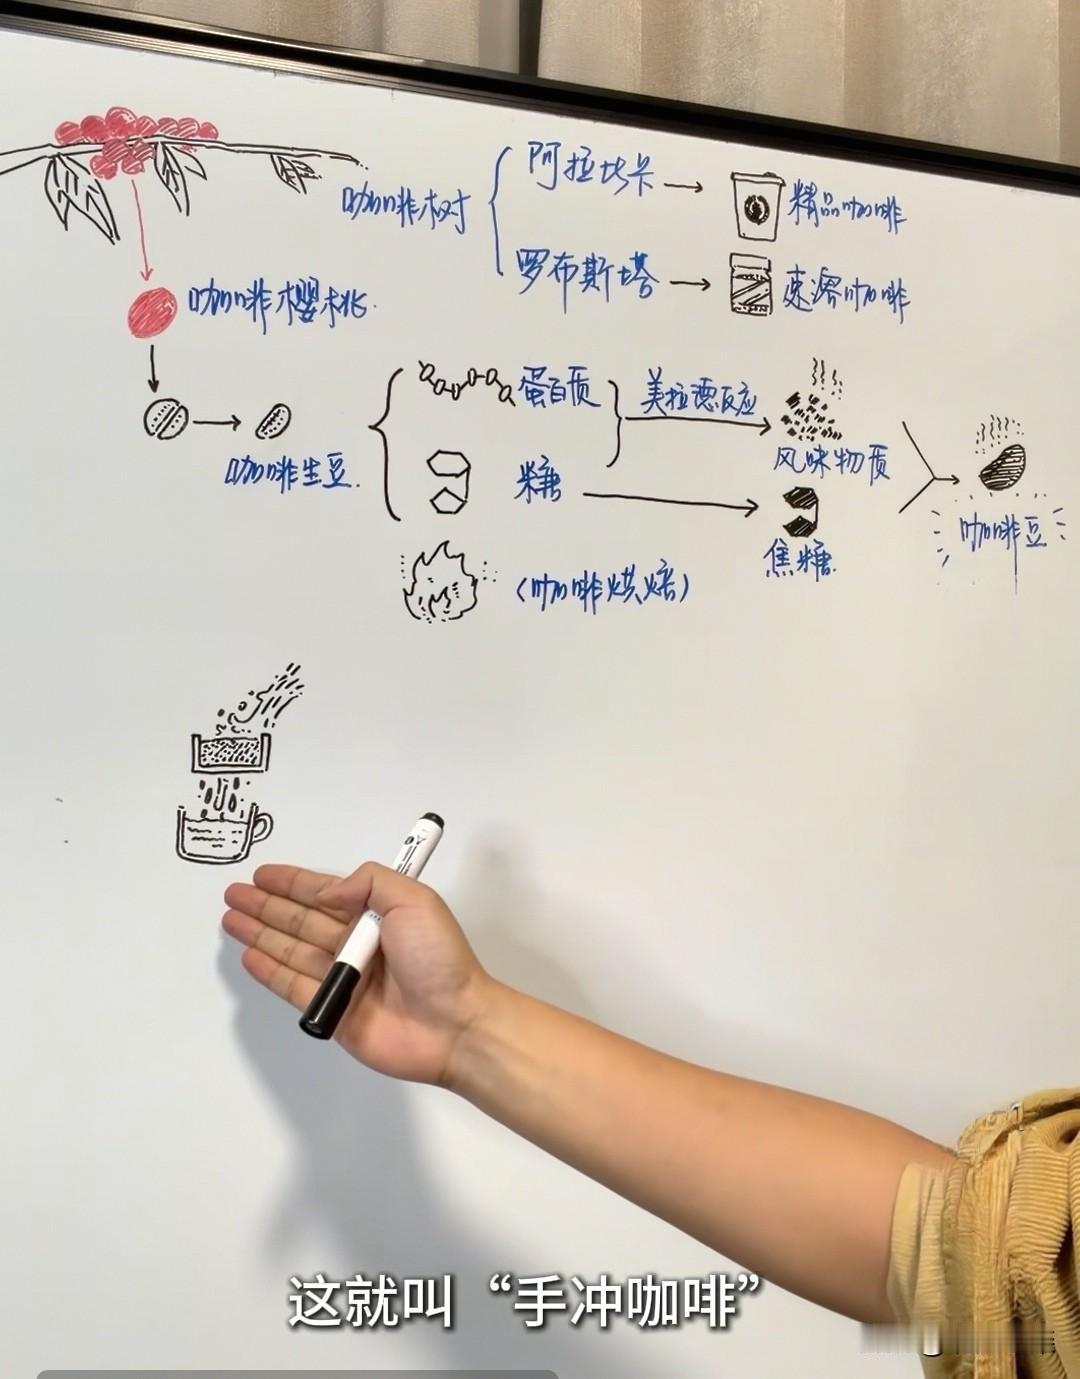 咖啡树
阿拉比卡
精品咖啡
罗布斯塔
速溶咖啡
咖啡樱桃
咖啡生豆
蛋白质
美拉德反应
风味物质
糖
焦糖
咖啡豆
(咖啡烘焙)
这就叫“手冲咖啡”